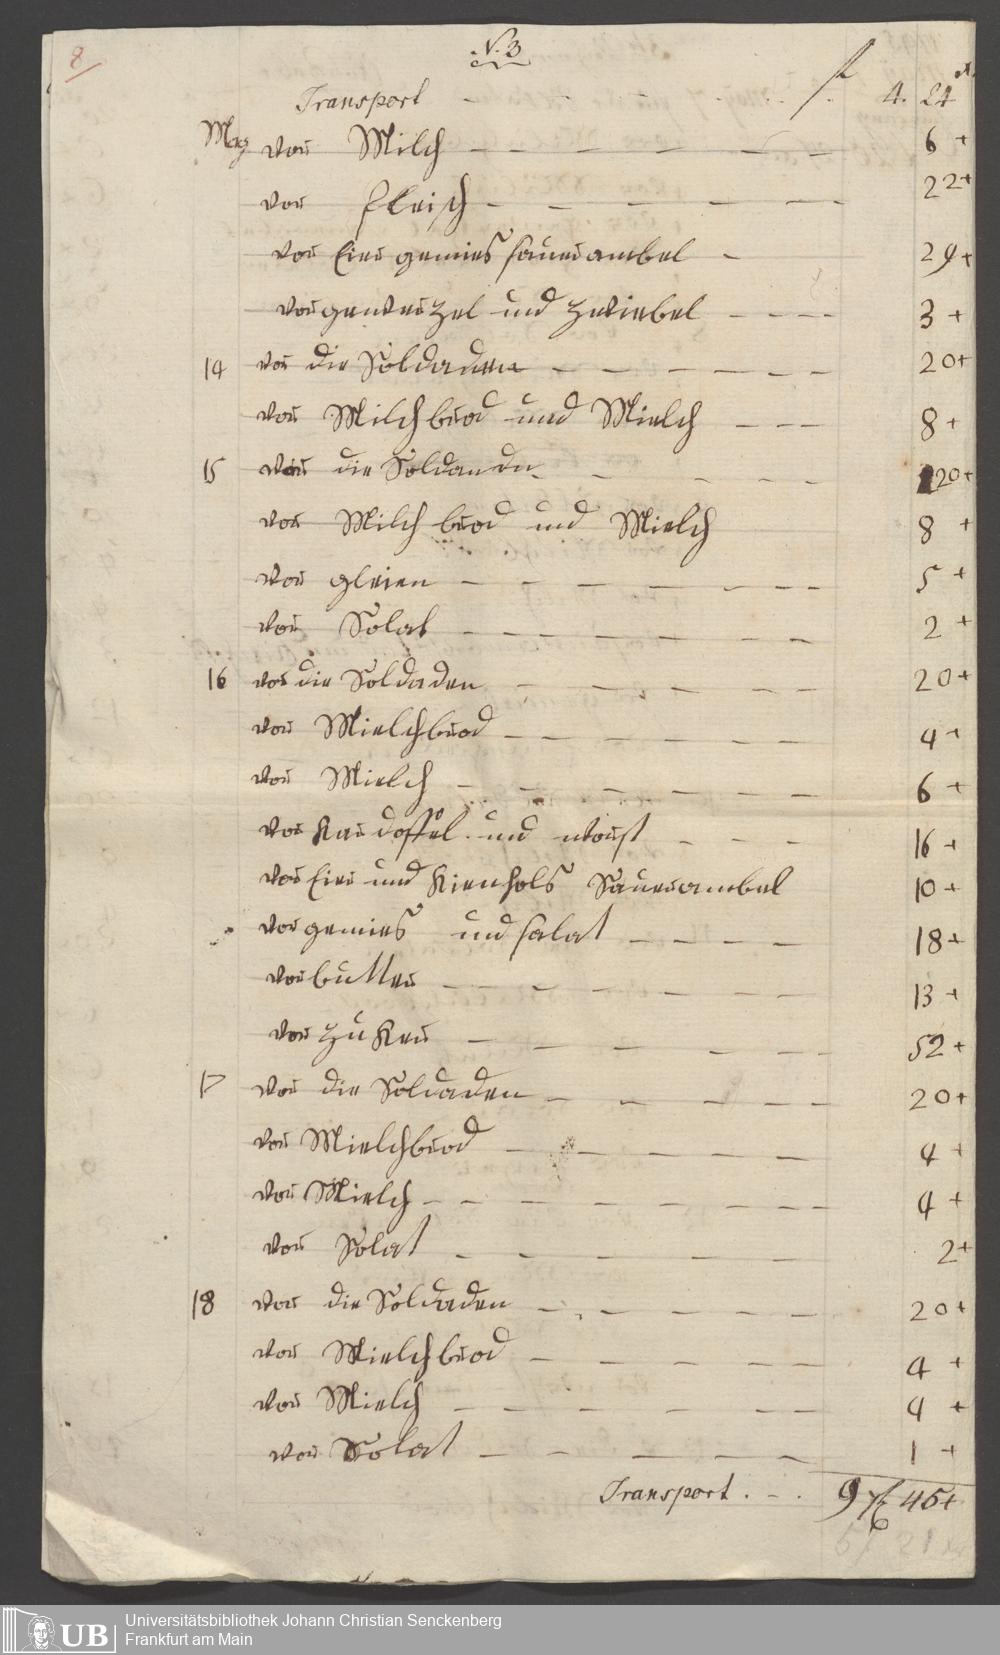 8
N. 3
Transport - - - f 4. 24 x
May vor Milch - - - - - - 6 +
vor fleisch - - - - - 22 +
vor Eier gemies sauerambel - 29 +
vor gendeuzel und zwiebel - - - - 3 +
14 vor die Soldaden - - - - - - 20 +
vor Milchbrod und Mielch - - - 8 +
15 vor die Soldanden - - - - - 20 +
vor Milch brod und Mielch 8 +
vor gleien - - - - - - - 5 +
vor Solat - - - - - - - 2 +
16 vor die Soldaden - - - - - 20 +
vor Mielchbrod - - - - - - 4 +
vor Mielch - - - - - - 6 +
vor Kardoffel und worst - - - 16 +
vor Eier und Kienhols Sauerambel 10 +
vor gemies und salat - - - - 18 +
vor butter - - - - - - - 13 +
vor zuker - - - - - 52 +
17 vor die Soldaden - - - - - 20 +
vor Mielchbrod - - - - - - 4 +
vor Mielch - - - - - - - 4 +
vor Solat - - - - - 2 +
18 vor die Soldaden - - - - - - 20 +
vor Mielchbrod - - - - - 4 +
vor Mielch - - - - - - 4 +
vor Solat - - - - - 1 +
Transport . - . 9 f 45 +
UB
Universitätsbibliothek Johann Christian Senckenberg
Frankfurt am Main